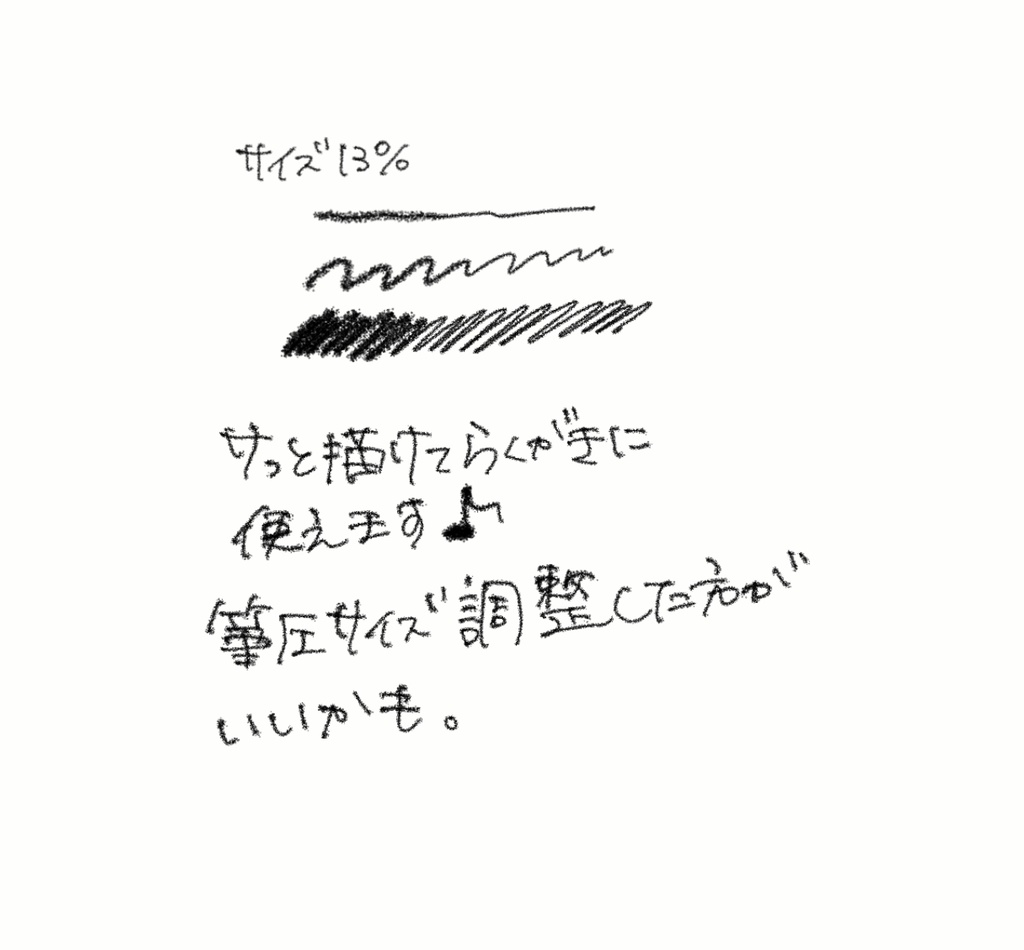 サイズ13%
サっと描けてらくがきに
使えます♪
筆圧サイズ調整した方が
いいかも。